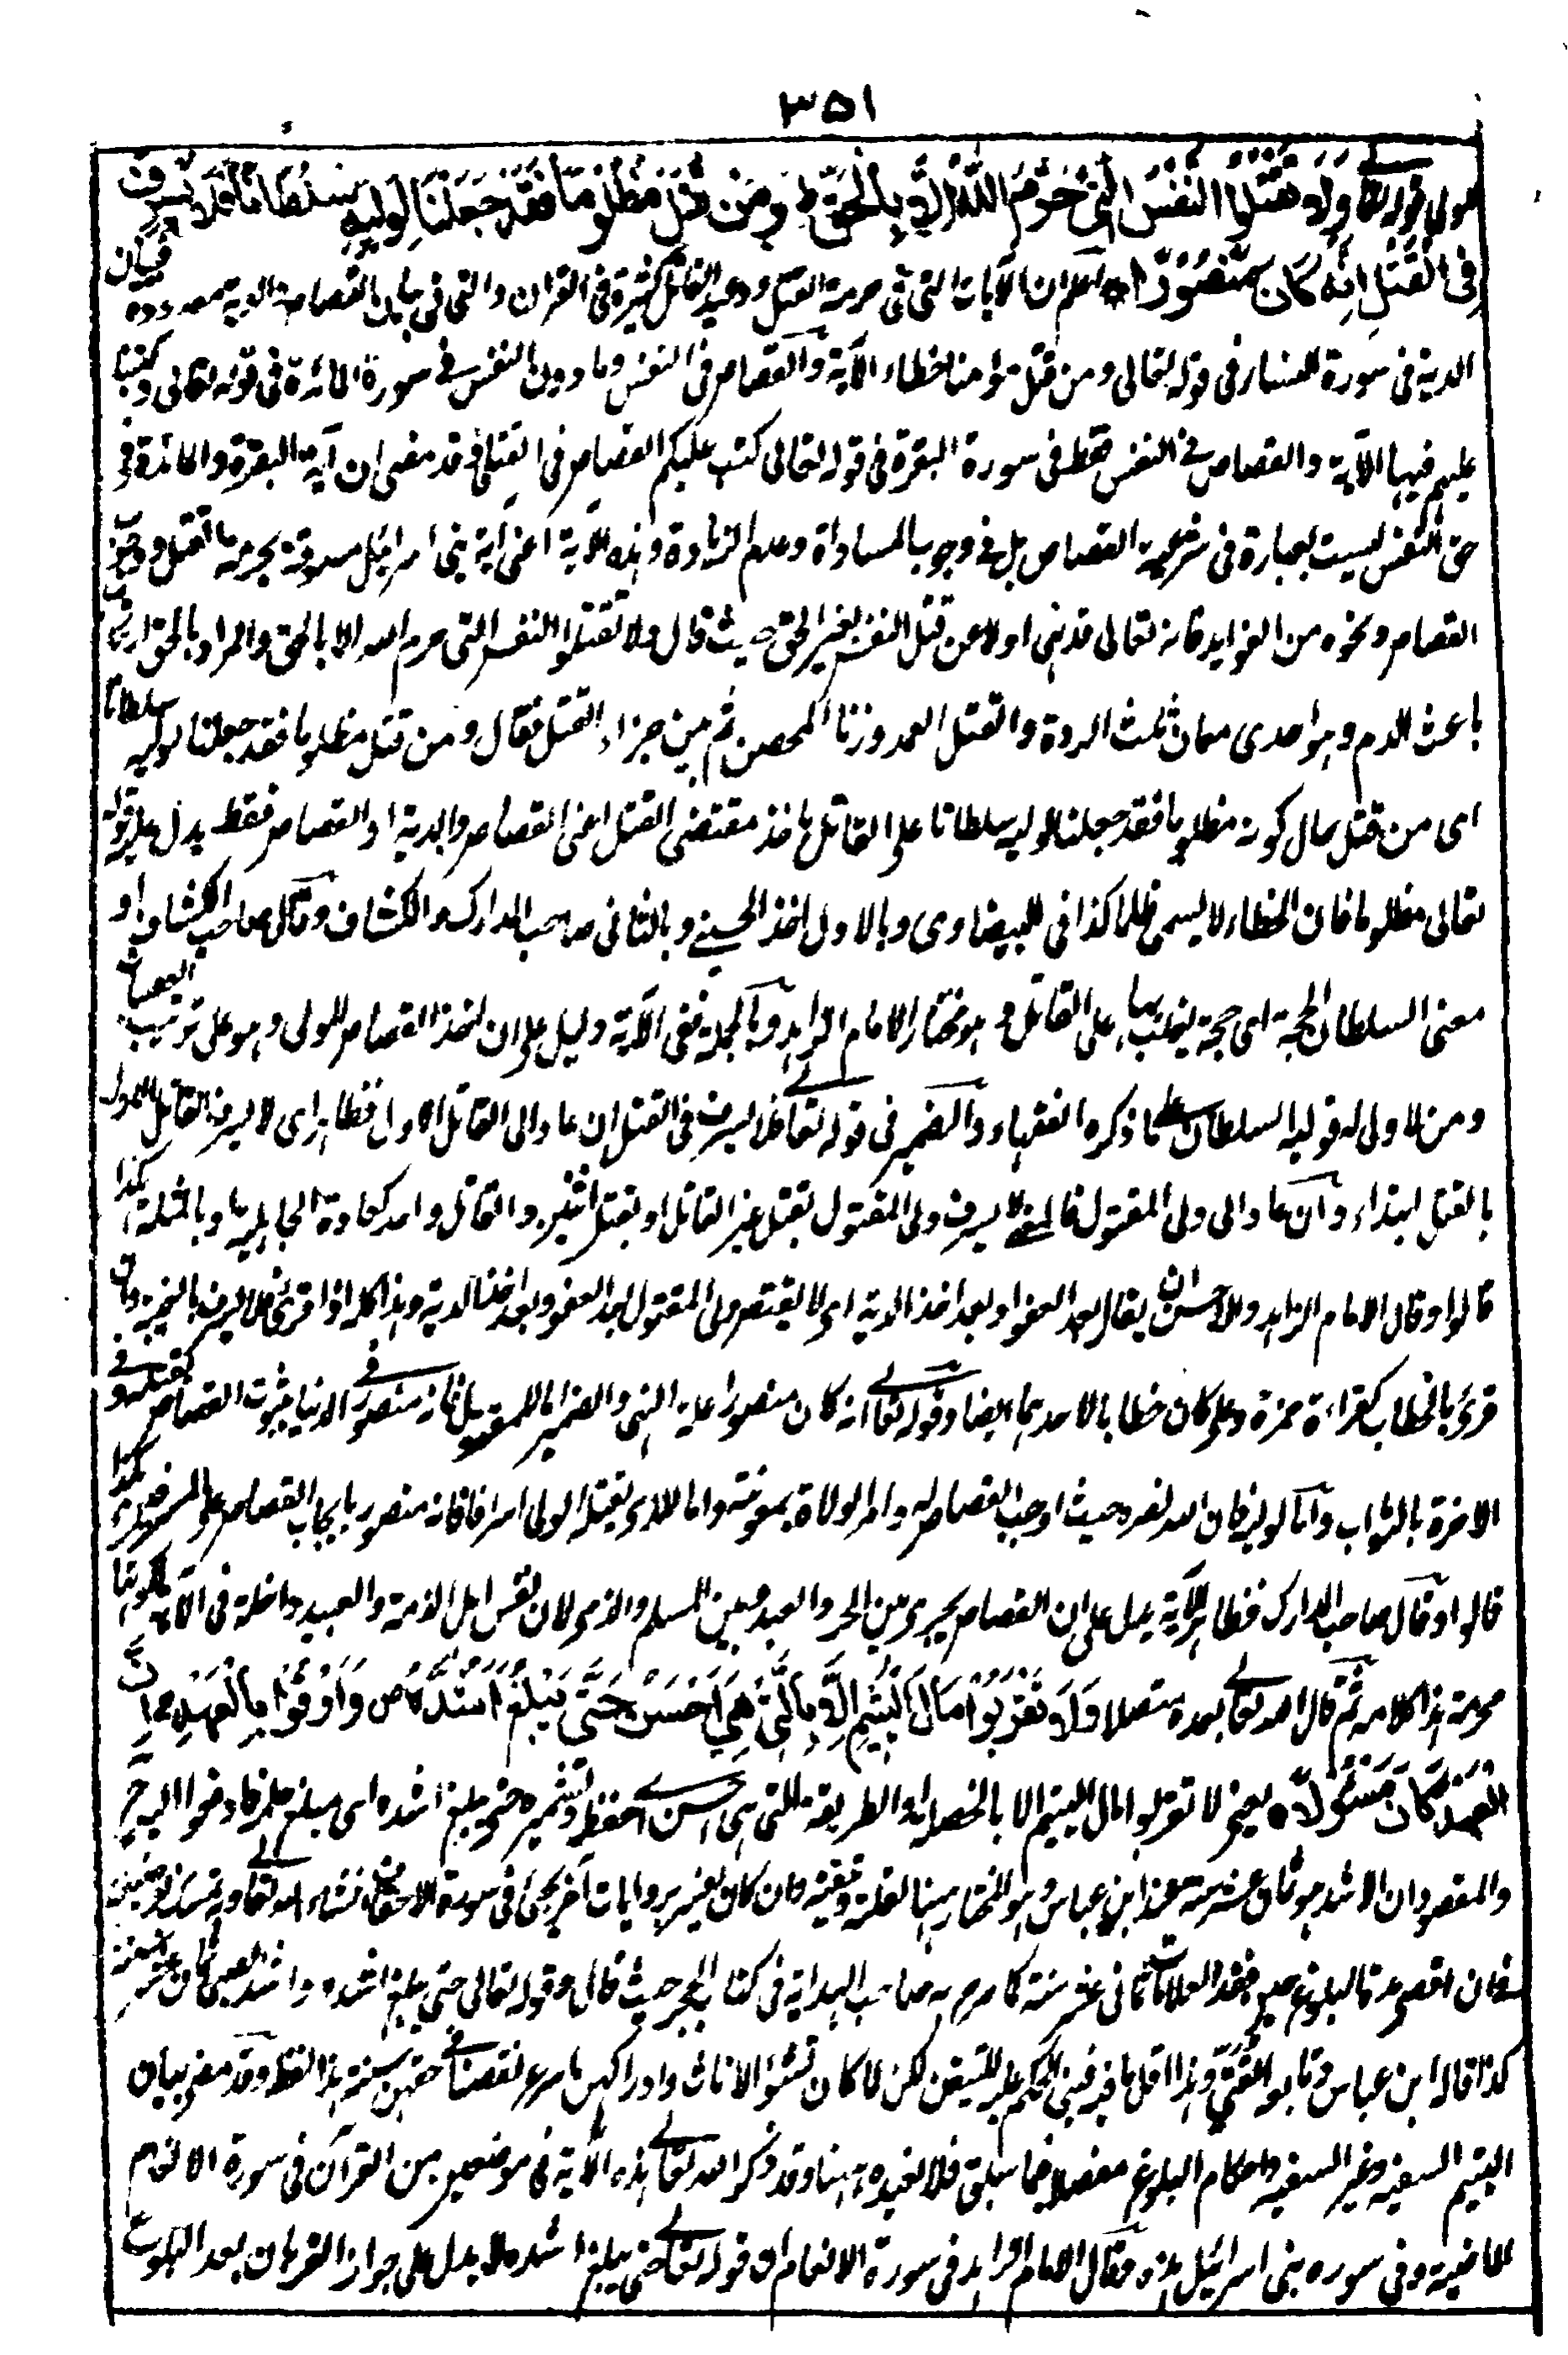 ٣٥١
قوله تعالى وَلَا تَقْتُلُوا النَّفْسَ الَّتِي حَرَّمَ اللَّهُ إِلَّا بِالْحَقِّ ط وَمَنْ قُتِلَ مَظْلُومًا فَقَدْ جَعَلْنَا لِوَلِيِّهِ سُلْطَانًا فَلَا يُسْرِفْ
فِي الْقَتْلِ إِنَّهُ كَانَ مَنْصُورًا اعلم ان الآيات التي في حرمة القتل ووعيد القاتل كثيرة في القران والتي في بيان القصاص والدية معدودة فبيان
الدية في سورة النساء في قوله تعالى ومن قتل مؤمنا خطاء الآية والقصاص في النفس وما دون النفس في سورة المائدة في قوله تعالى وكتبنا
عليهم فيها الآية والقصاص في النفس فقط في سورة البقرة في قوله تعالى كتب عليكم القصاص في القتلى وقد مضى ان آية البقرة والمائدة في
حق النفس ليست بعبارة في شرعية القصاص بل في وجوب المساواة وعدم الزيادة وهذه الآية اعنى آية بنى اسرائيل مسوقة بحرمة القتل ووجوب
القصاص ونحوه من الفوايد فانه تعالى قد نهى اولا عن قتل النفس بغير الحق حيث قال ولا تقتلوا النفس التي حرم الله الا بالحق والمراد بالحق
باعث الدم وهو احدى معان ثلث الردة والقتل العمد وزنا المحصن ثم بين جزاء القتل فقال ومن قتل مظلوما فقد جعلنا لوليه سلطانا
اى من قتل حال كونه مظلوما فقد جعلنا لوليه سلطانا على القاتل باخذ مقتضى القتل اعنى القصاص والدية او القصاص فقط يدل عليه قوله
تعالى مظلوما فان الخطاء لا يسمى ظلما كذا في البيضاوى وبالاول اخذ الحسيني وبالثانى صاحب المدارك والكشاف وقال صاحب الكشاف او
معنى السلطان الحجة اى حجة يغلب بها على القاتل وهو مختار الامام الزاهد وبالجملة ففى الآية دليل على ان اخذ القصاص للولى وهو على ترتيب العصبات
ومن لا ولى له فوليه السلطان على ما ذكره الفقهاء والضمير في قوله تعالى فلا يسرف في القتل ان عاد الى القاتل الاول فظاهر اى لا يسرف القاتل
بالقتل ابتداء وان عاد الى ولى المقتول فالمعنى لا يسرف ولى المقتول بقتل غير القاتل او بقتل اثنين والقاتل واحد كعادة الجاهلية او بالمثلة كذا
قالوا وقال الامام الزاهد والاحسن ان يقال بعد العفو او بعد اخذ الدية اى لا يقتص ولى المقتول بعد العفو وبعد اخذ الدية وهذا كله اذا قرئ فلا يسرف بالغيبة وان
قرئ بالخطاب كقراءة حمزة وعلى كان خطابا لاحدهما ايضا وقوله تعالى انه كان منصورا علة النهى والضمير اما للمقتول فانه منصور في الدنيا بثبوت القصاص وفي
الاخرة بالثواب واما لوليه فان الله نصره حيث اوجب القصاص له وامر الولاة بمعونته واما للذى يقتله الولى اسرافا فانه منصور بايجاب القصاص على المسرف كذا
قالوا وقال صاحب المدارك فظاهر الآية يدل على ان القصاص يجرى بين الحر والعبد وبين المسلم والذمى لان نفس اهل الذمة والعبيد داخلة في الآية لكونها
محرمة هذا كلامه ثم قال الله تعالى بعده متصلا وَلَا تَقْرَبُوا مَالَ الْيَتِيمِ إِلَّا بِالَّتِي هِيَ أَحْسَنُ حَتَّى يَبْلُغَ أَشُدَّهُ ص وَأَوْفُوا بِالْعَهْدِ ج إِنَّ
الْعَهْدَ كَانَ مَسْئُولًا يعنى لا تقربوا مال اليتيم الا بالخصلة والطريقة التي هى احسن اى حفظه وتثميره حتى يبلغ اشده اى مبلغ
والمقصود ان الاشد هو ثمان عشر سنة عند ابن عباس وهو المختار ههنا لقلته وتيقنه وان كان تفسيره بروايات اخر يجئ في سورة الاحقاف انشاء الله تعالى وبه
فان اقصى مدة البلوغ حين فقد العلامات ثمانى عشر سنة كما صرح به صاحب الهداية في كتاب الحجر حيث قال وقوله تعالى حتى يبلغ اشده واشد الصبى ثمان عشر سنة
كذا قاله ابن عباس وتابعه القتبي وهذا اقل ما قيل فيه فيبنى الحكم عليه للتيقن لكن لما كان نشو الاناث وادراكهن اسرع نقصنا في حقهن سنة هذا لفظه وقد مضى بيان
اليتيم السفيه وغير السفيه واحكام البلوغ مفصلا فيما سبق فلا نعيده ههنا وقد ذكر الله تعالى هذه الآية في موضعين من القرآن في سورة الانعام
الماضية وفي سورة بنى اسرائيل هذه وقال الامام الزاهد في سورة الانعام ان قوله تعالى حتى يبلغ اشده لا يدل على جواز القربان بعد البلوغ